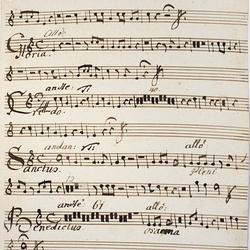 Allo:
Gloria.
andte:
Credo.
andan:
allo:
Sanctus.
Pleni
andte
61
allo:
Benedictus
osanna